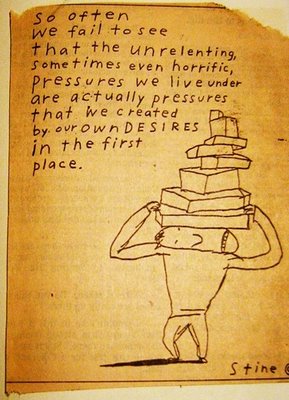 so often
we fail to see
that the unrelenting,
sometimes even horrific,
pressures we live under
are actually pressures
that we created
by our own DESIRES
in the first
place.
Stine